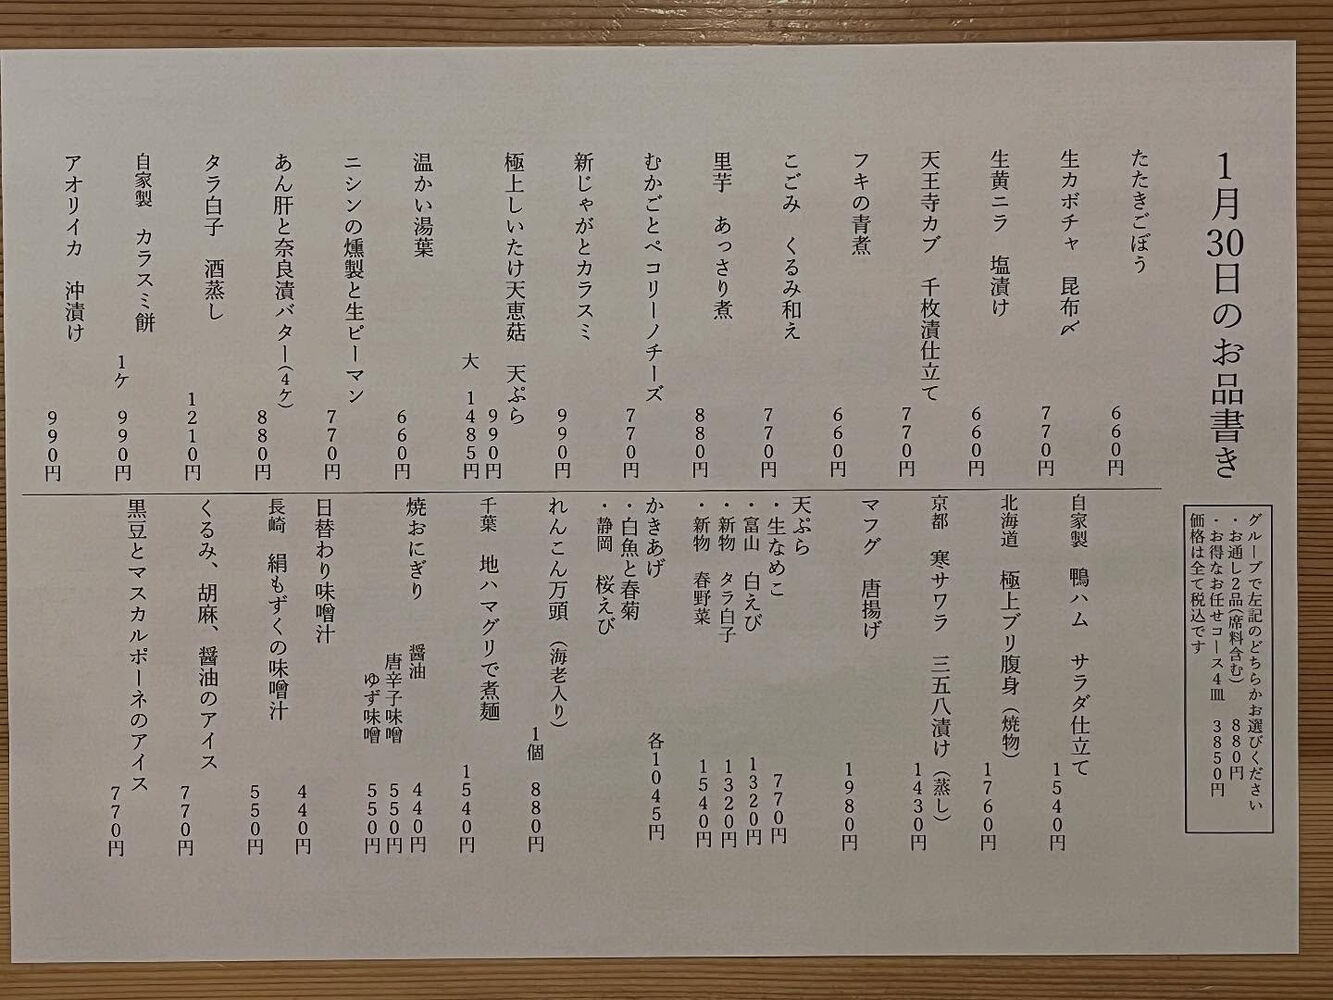 1月30日のお品書き
グループで左記のどちらかお選びください
・お通し2品(席料含む) 880円
・お得なお任せコース4皿 3850円
価格は全て税込です
たたきごぼう 660円
生カボチャ 昆布〆 770円
生黄ニラ 塩漬け 660円
天王寺カブ 千枚漬仕立て 770円
フキの青煮 660円
こごみ くるみ和え 770円
里芋 あっさり煮 880円
むかごとペコリーノチーズ 770円
新じゃがとカラスミ 990円
極上しいたけ天恵菇 天ぷら 990円
大 1485円
温かい湯葉 660円
ニシンの燻製と生ピーマン 770円
あん肝と奈良漬バター(4ヶ) 880円
タラ白子 酒蒸し 1210円
自家製 カラスミ餅
1ケ 990円
アオリイカ 沖漬け 990円
自家製 鴨ハム サラダ仕立て 1540円
北海道 極上ブリ腹身(焼物) 1760円
京都 寒サワラ 三五八漬け(蒸し) 1430円
マフグ 唐揚げ 1980円
天ぷら
・生なめこ 770円
・富山 白えび 1320円
・新物 タラ白子 1320円
・新物 春野菜 1540円
かきあげ 各1045円
・白魚と春菊
・静岡 桜えび
れんこん万頭 (海老入り)
1個 880円
千葉 地ハマグリで煮麺 1540円
焼おにぎり 醤油 440円
唐辛子味噌 550円
ゆず味噌 550円
日替わり味噌汁 440円
長崎 絹もずくの味噌汁 550円
くるみ、胡麻、醤油のアイス 770円
黒豆とマスカルポーネのアイス 770円